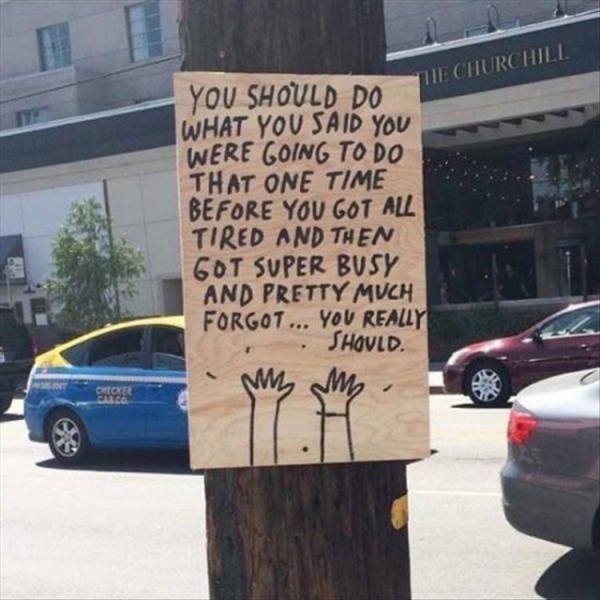 YOU SHOULD DO
WHAT YOU SAID YOU
WERE GOING TO DO
THAT ONE TIME
BEFORE YOU GOT ALL
TIRED AND THEN
GOT SUPER BUSY
AND PRETTY MUCH
FORGOT... YOU REALLY
SHOULD.
THE CHURCHILL
CHECKER
CAB CO.